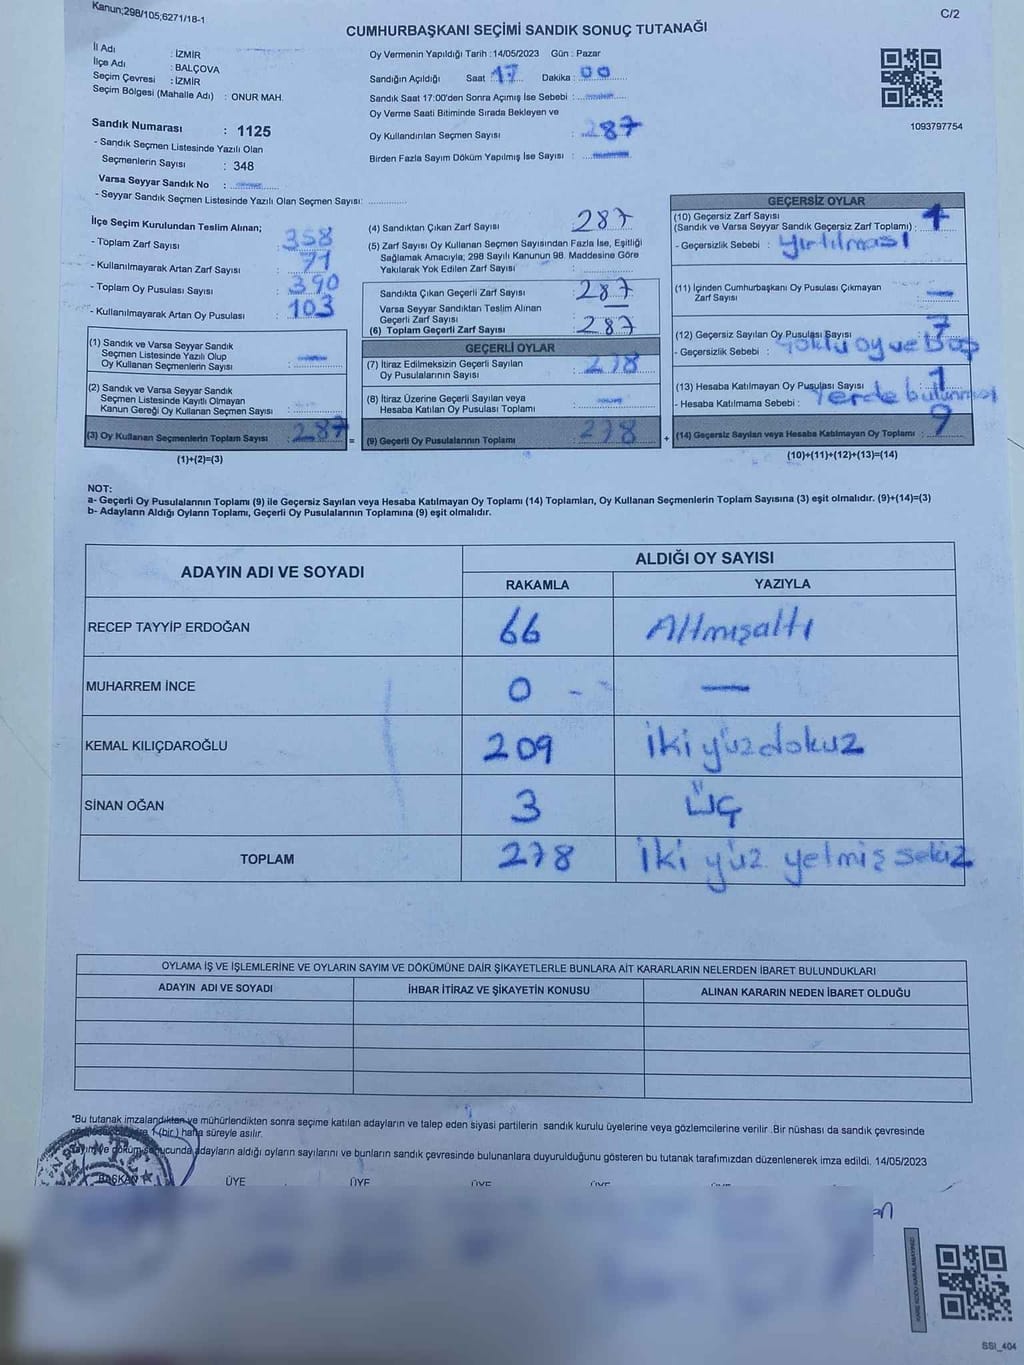 Kanun;298/105;6271/18-1
C/2
CUMHURBAŞKANI SEÇİMİ SANDIK SONUÇ TUTANAĞI
İl Adı : İZMİR
İlçe Adı : BALÇOVA
Seçim Çevresi : İZMİR
Seçim Bölgesi (Mahalle Adı) : ONUR MAH.
Sandık Numarası : 1125
- Sandık Seçmen Listesinde Yazılı Olan
Seçmenlerin Sayısı : 348
Varsa Seyyar Sandık No : —
- Seyyar Sandık Seçmen Listesinde Yazılı Olan Seçmen Sayısı:
Oy Vermenin Yapıldığı Tarih :14/05/2023 Gün : Pazar
Sandığın Açıldığı Saat 17 Dakika : 00
Sandık Saat 17:00'den Sonra Açımış İse Sebebi : —
Oy Verme Saati Bitiminde Sırada Bekleyen ve
Oy Kullandırılan Seçmen Sayısı : 287
Birden Fazla Sayım Döküm Yapılmış İse Sayısı : —
1093797754
İlçe Seçim Kurulundan Teslim Alınan;
- Toplam Zarf Sayısı : 358
- Kullanılmayarak Artan Zarf Sayısı : 71
- Toplam Oy Pusulası Sayısı : 390
- Kullanılmayarak Artan Oy Pusulası : 103
(1) Sandık ve Varsa Seyyar Sandık
Seçmen Listesinde Yazılı Olup
Oy Kullanan Seçmenlerin Sayısı : —
(2) Sandık ve Varsa Seyyar Sandık
Seçmen Listesinde Kayıtlı Olmayan
Kanun Gereği Oy Kullanan Seçmen Sayısı :
(3) Oy Kullanan Seçmenlerin Toplam Sayısı : 287 =
(1)+(2)=(3)
(4) Sandıktan Çıkan Zarf Sayısı : 287
(5) Zarf Sayısı Oy Kullanan Seçmen Sayısından Fazla İse, Eşitliği
Sağlamak Amacıyla; 298 Sayılı Kanunun 98. Maddesine Göre
Yakılarak Yok Edilen Zarf Sayısı :
Sandıkta Çıkan Geçerli Zarf Sayısı : 287
Varsa Seyyar Sandıktan Teslim Alınan
Geçerli Zarf Sayısı : —
(6) Toplam Geçerli Zarf Sayısı : 287
GEÇERLİ OYLAR
(7) İtiraz Edilmeksizin Geçerli Sayılan
Oy Pusulalarının Sayısı : 278
(8) İtiraz Üzerine Geçerli Sayılan veya
Hesaba Katılan Oy Pusulası Toplamı : —
(9) Geçerli Oy Pusulalarının Toplamı : 278 +
GEÇERSİZ OYLAR
(10) Geçersiz Zarf Sayısı
(Sandık ve Varsa Seyyar Sandık Geçersiz Zarf Toplamı) : 1
- Geçersizlik Sebebi : Yırtılması
(11) İçinden Cumhurbaşkanı Oy Pusulası Çıkmayan
Zarf Sayısı : —
(12) Geçersiz Sayılan Oy Pusulası Sayısı : 7
- Geçersizlik Sebebi : Çoklu oy ve boş
(13) Hesaba Katılmayan Oy Pusulası Sayısı : 1
- Hesaba Katılmama Sebebi : Yerde bulunması
(14) Geçersiz Sayılan veya Hesaba Katılmayan Oy Toplamı : 9
(10)+(11)+(12)+(13)=(14)
NOT:
a- Geçerli Oy Pusulalarının Toplamı (9) ile Geçersiz Sayılan veya Hesaba Katılmayan Oy Toplamı (14) Toplamları, Oy Kullanan Seçmenlerin Toplam Sayısına (3) eşit olmalıdır. (9)+(14)=(3)
b- Adayların Aldığı Oyların Toplamı, Geçerli Oy Pusulalarının Toplamına (9) eşit olmalıdır.
ADAYIN ADI VE SOYADI
ALDIĞI OY SAYISI
RAKAMLA YAZIYLA
RECEP TAYYİP ERDOĞAN 66 Altmışaltı
MUHARREM İNCE 0 —
KEMAL KILIÇDAROĞLU 209 İki yüz dokuz
SİNAN OĞAN 3 Üç
TOPLAM 278 İki yüz yetmiş sekiz
OYLAMA İŞ VE İŞLEMLERİNE VE OYLARIN SAYIM VE DÖKÜMÜNE DAİR ŞİKAYETLERLE BUNLARA AİT KARARLARIN NELERDEN İBARET BULUNDUKLARI
ADAYIN ADI VE SOYADI İHBAR İTİRAZ VE ŞİKAYETİN KONUSU ALINAN KARARIN NEDEN İBARET OLDUĞU
*Bu tutanak imzalandıkten ve mühürlendikten sonra seçime katılan adayların ve talep eden siyasi partilerin sandık kurulu üyelerine veya gözlemcilerine verilir .Bir nüshası da sandık çevresinde
1 (bir) hafta süreyle asılır.
Sayım ve döküm sonucunda adayların aldığı oyların sayılarını ve bunların sandık çevresinde bulunanlara duyurulduğunu gösteren bu tutanak tarafımızdan düzenlenerek imza edildi. 14/05/2023
BAŞKAN ÜYE ÜYE ÜYE ÜYE
SSI_404